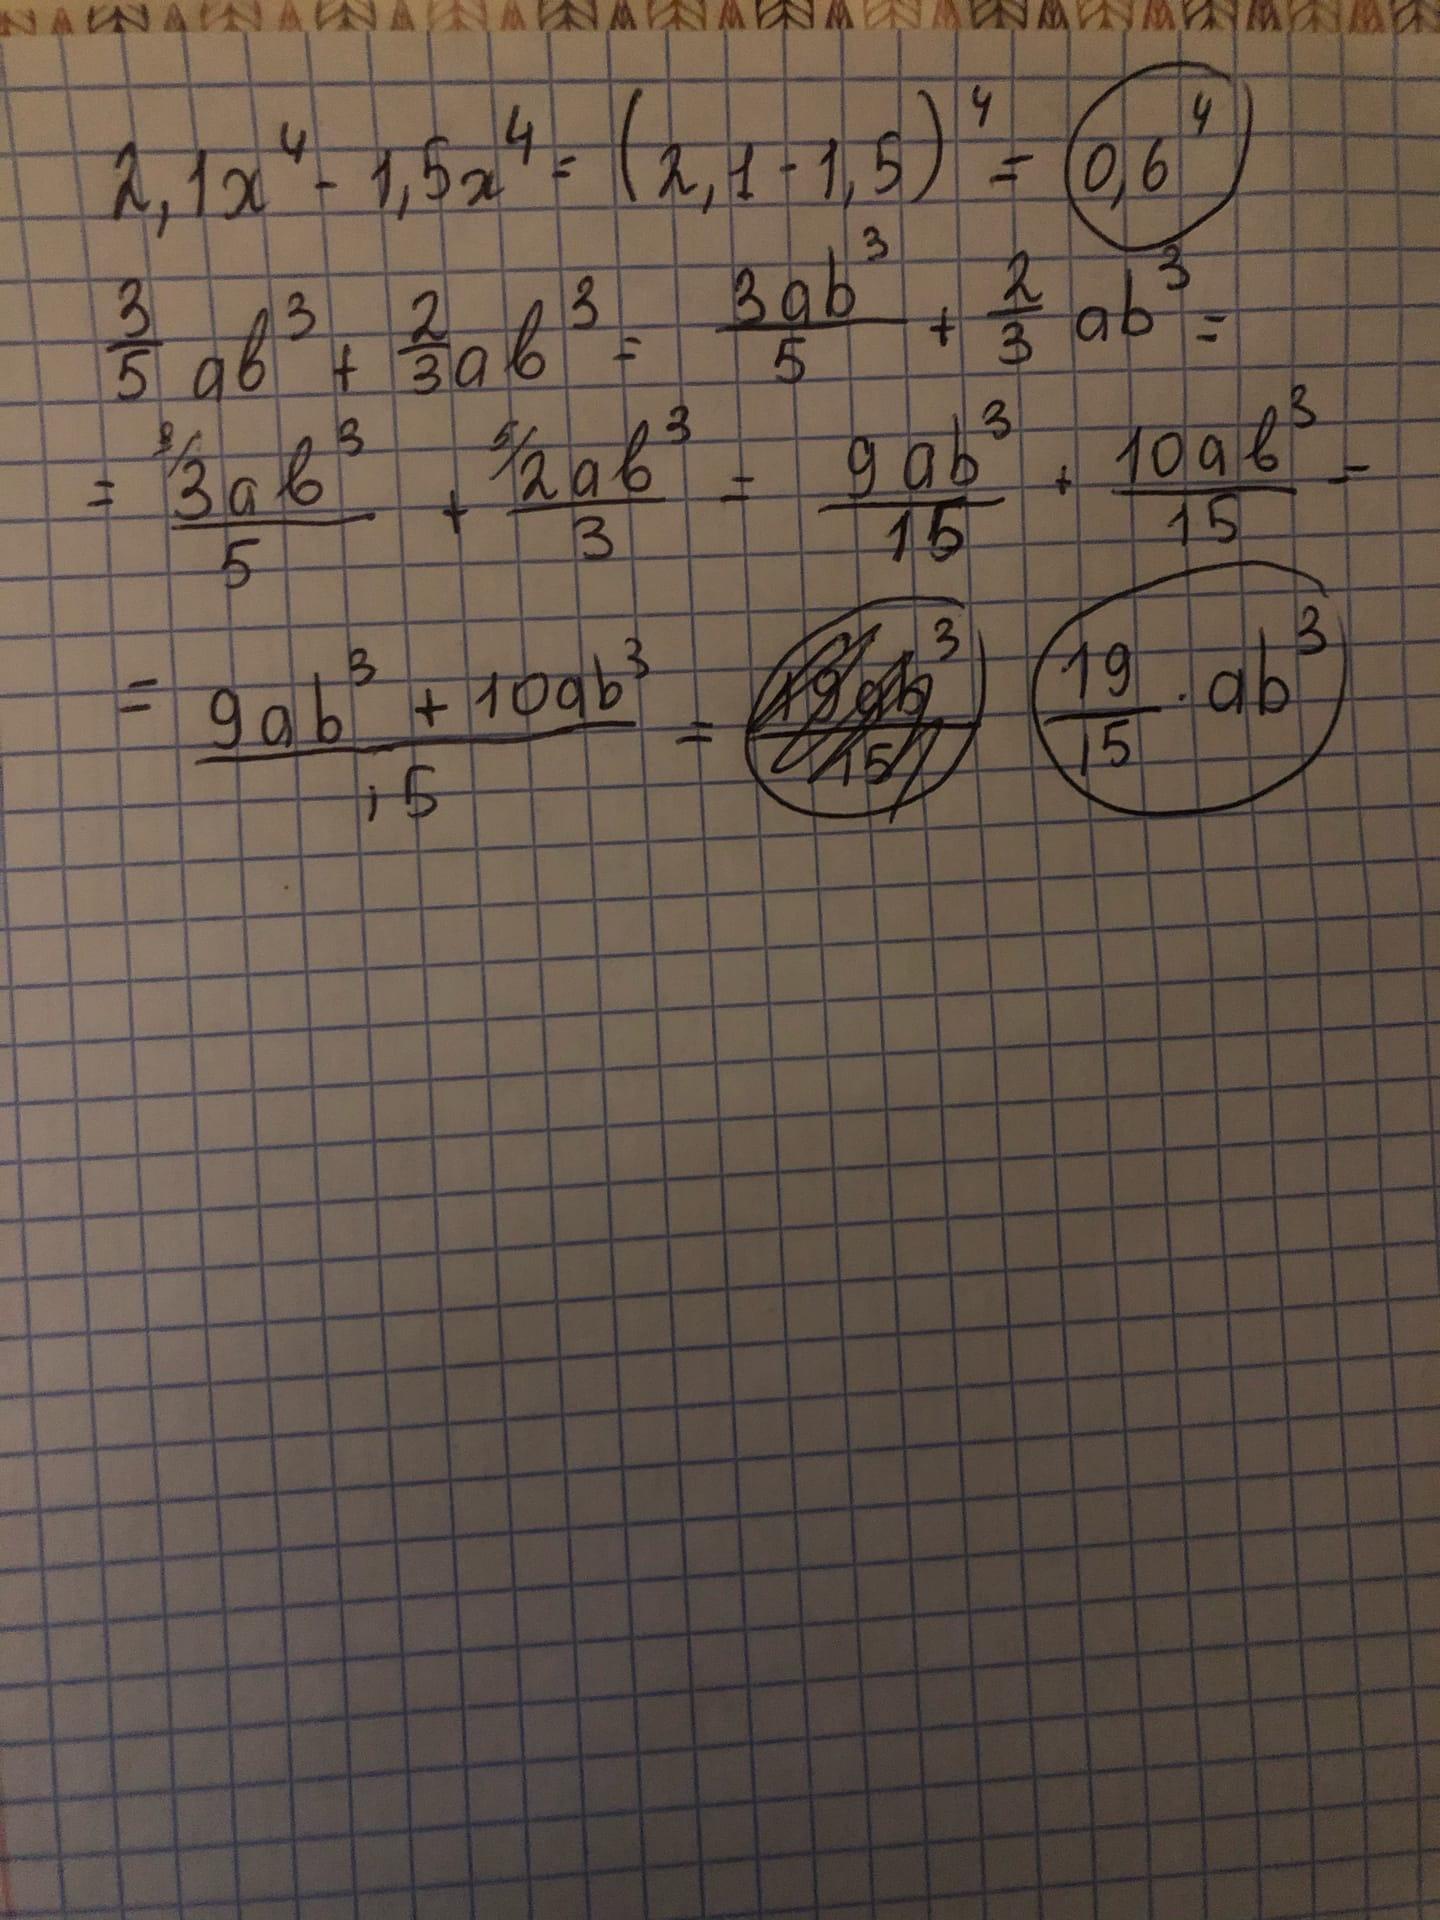 2,1x⁴ - 1,5x⁴ = (2,1 - 1,5)⁴ = 0,6⁴
3/5 ab³ + 2/3 ab³ = 3ab³/5 + 2/3 ab³ =
= ³⁄3ab³/5 + ⁵⁄2ab³/3 = 9ab³/15 + 10ab³/15 =
= 9ab³ + 10ab³/15 = 19ab³/15 19/15 · ab³